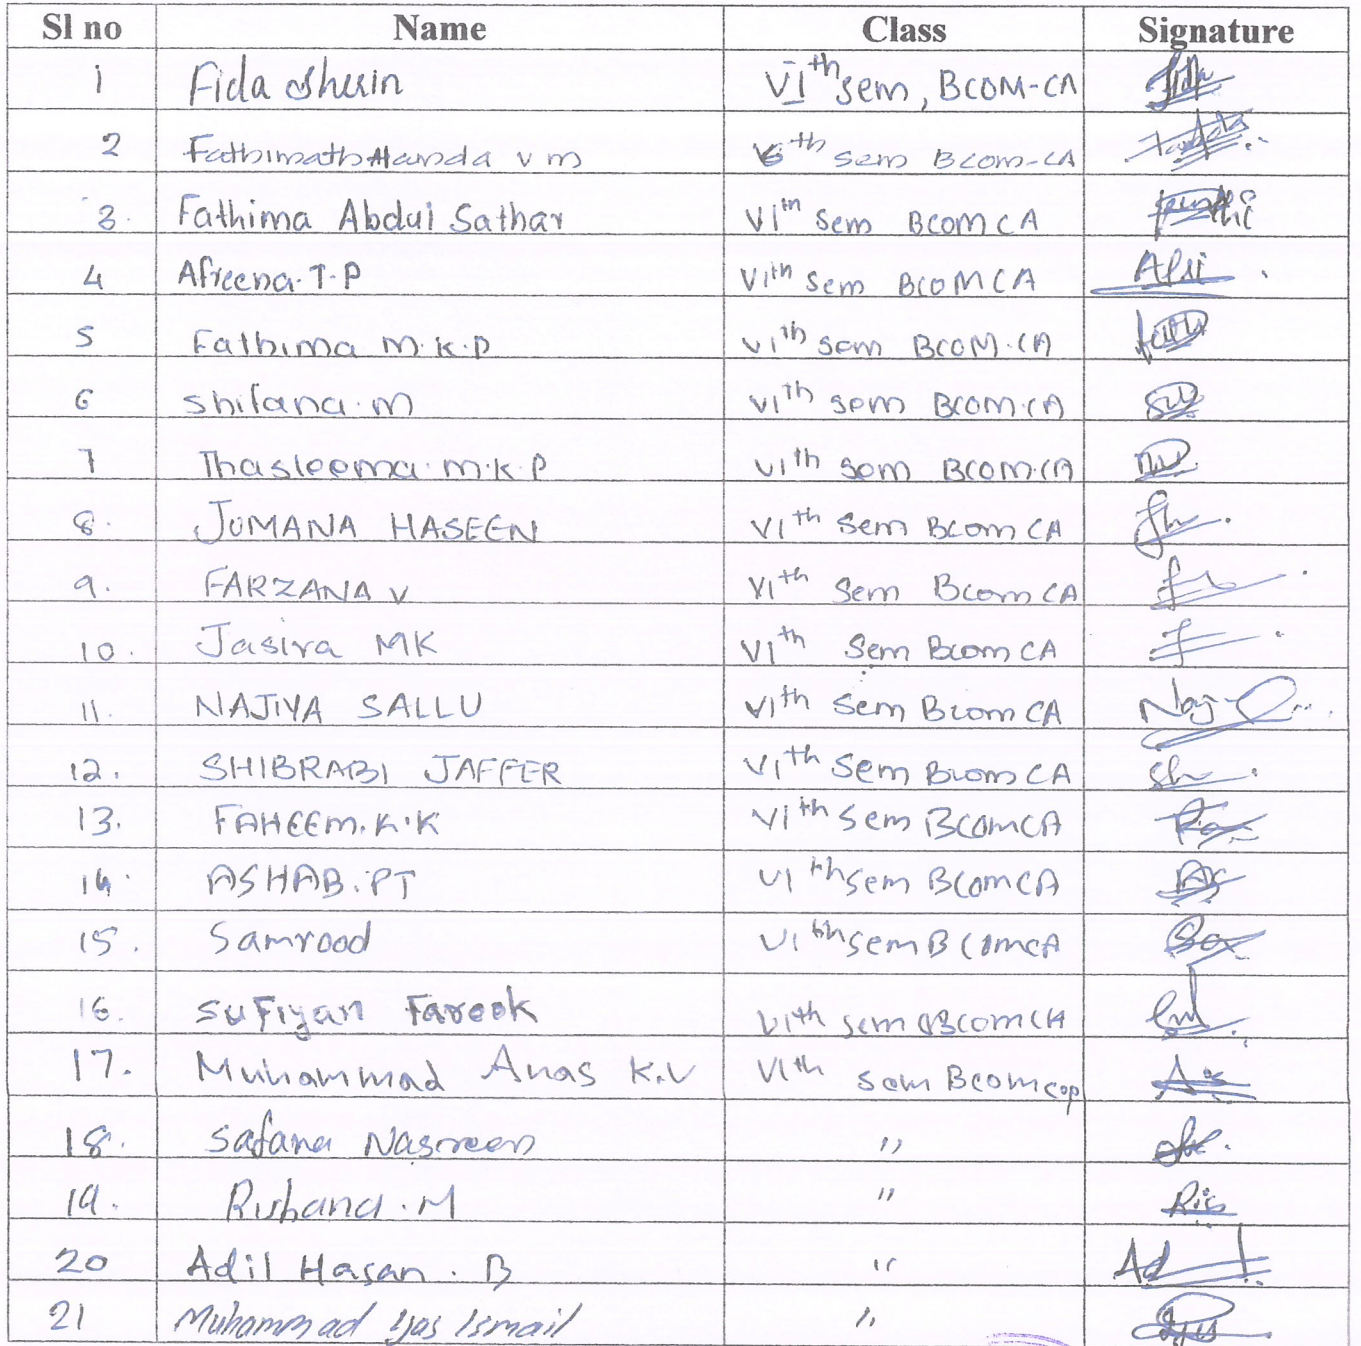 Sl no Name Class Signature
1 Fida Sherin VIth Sem, BCOM-CA
2 Fathimath Handa V M VIth Sem Bcom-CA
3. Fathima Abdul Sathar VIth Sem BCOM CA
4 Afreena.T.P VIth Sem BCOM CA Afri
5 Fathima M.K.P VIth Sem BCOM.CA
6 Shifana.M VIth Sem BCOM.CA
7 Thasleema.M.K.P VIth Sem BCOM.CA
8. JUMANA HASEEN VIth Sem Bcom CA
9. FARZANA V VIth Sem Bcom CA
10. Jasira MK VIth Sem Bcom CA
11. NAJIYA SALLU VIth Sem Bcom CA
12. SHIBRABI JAFFER VIth Sem Bcom CA
13. FAHEEM.K.K VIth Sem BComCA
14. ASHAB.PT VIth Sem BComCA
15. Samrood VIth Sem BComCA
16. Sufiyan Farook VIth Sem BComCA
17. Muhammad Anas K.V VIth Sem Bcom
18. Safana Nasreen "
19. Rishana.M " Ris
20 Adil Hasan. B " Ad
21 Muhammad Iyas Ismail "